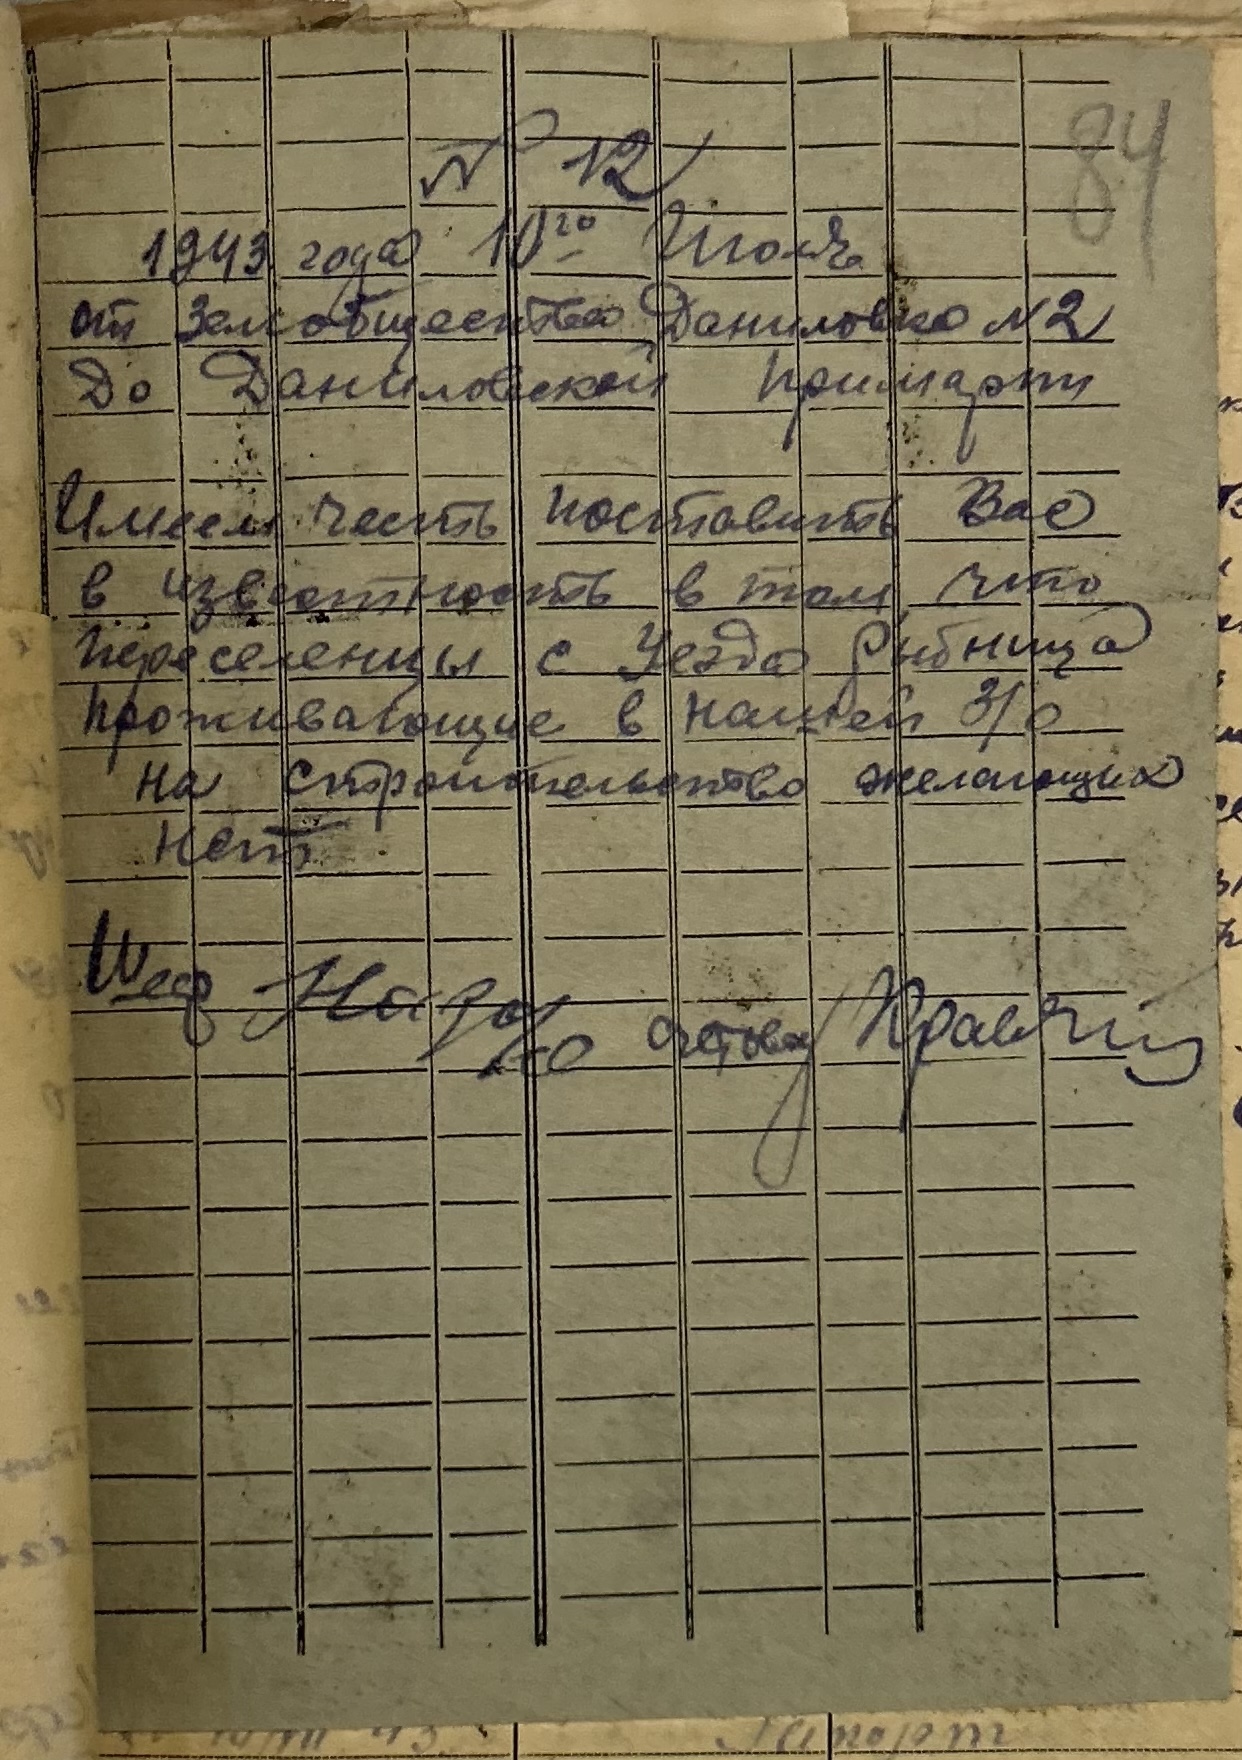 84
№ 12
1943 года 10го Июня
от Земобщество Даниловка №2
До Даниловской Примарти
Имеем честь поставить Вас
в известность в том, что
переселенцы с Уезда Рыбница
проживающие в нашей З/о
на строительство желающих
нет
Шеф счетов Кравчи
Рапорт